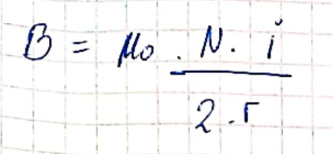 B = μ₀ · N · i
2 · r